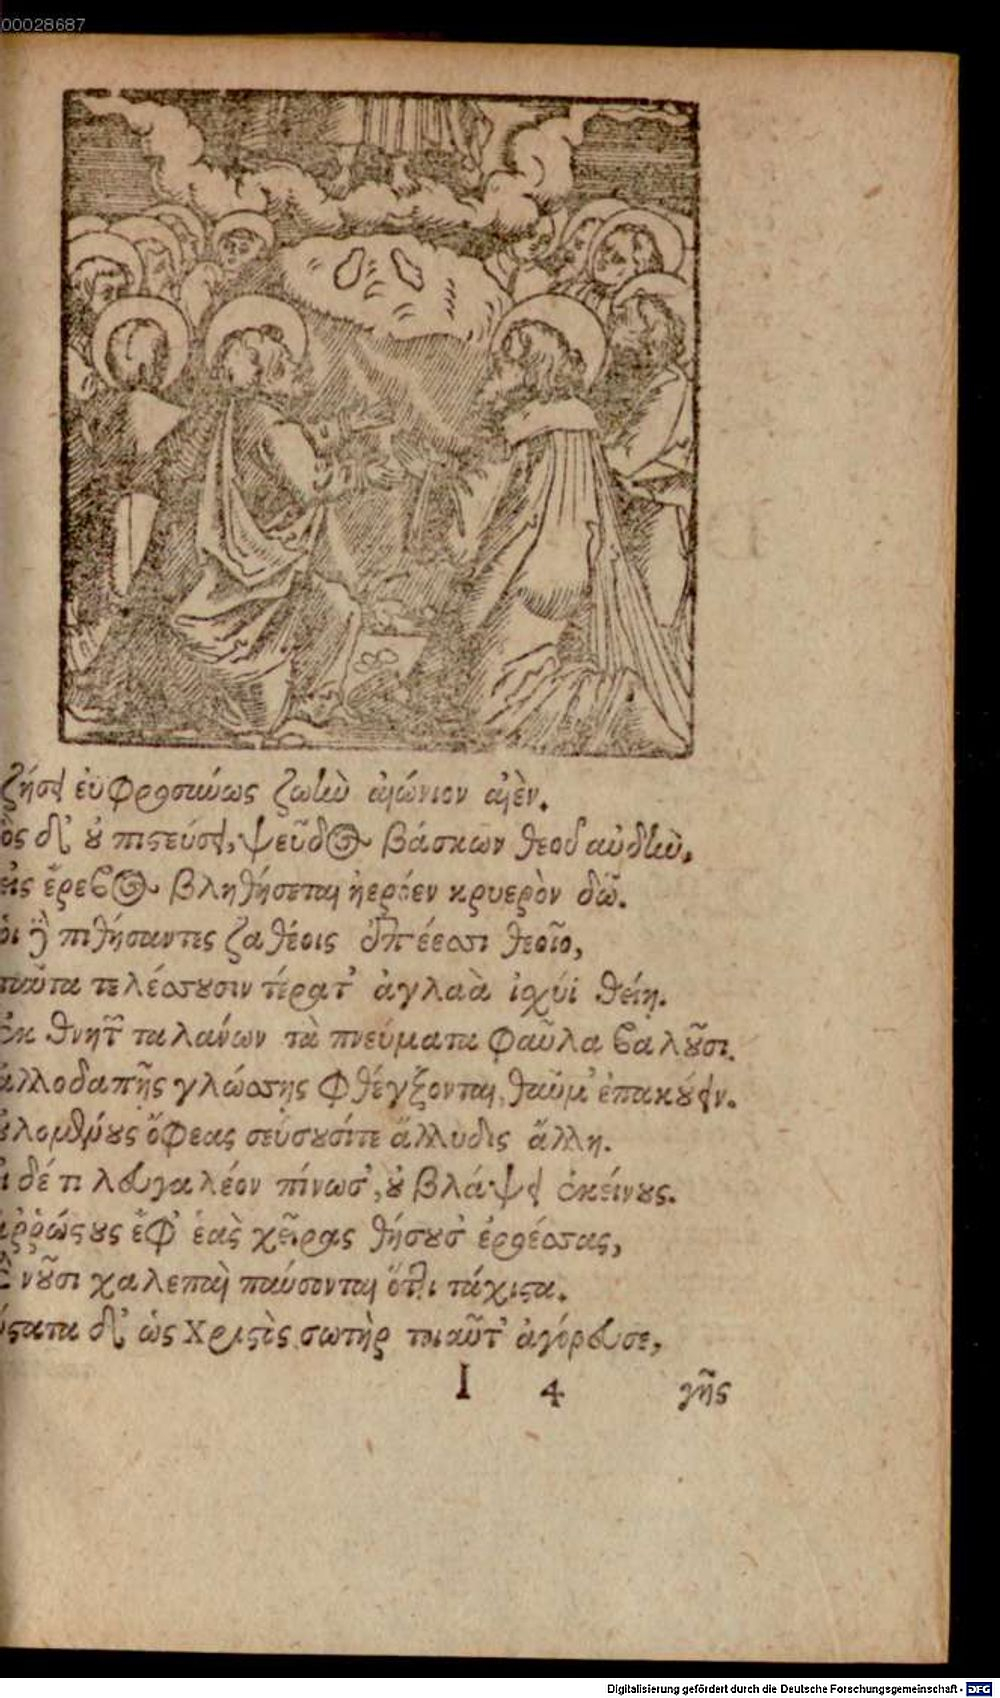 00028687
ζήσει ἐϋφροσύνως ζωὴν αἰώνιον αἰέν.
ὃς δ' οὐ πιστεύσει, ψεῦδος βάσκων θεοῦ αὐδὴν,
εἰς ἔρεβος βληθήσεται ἠερόεν κρυερὸν δῶ.
οἱ δὲ πιθήσαντες ζαθέοις ἐπέεσσι θεοῖο,
ταῦτα τελέσουσιν τέρατ' ἀγλαὰ ἰσχύϊ θείῃ.
ἐκ θνητῶν ταλάνων τὰ πνεύματα φαῦλα βαλοῦσι.
ἀλλοδαπῆς γλώσσης φθέγξονται, θαῦμ' ἐπακούειν.
οὐλομένους ὄφεας σεύσουσίτε ἄλλυδις ἄλλῃ.
εἰ δέ τι λευγαλέον πίνωσ', οὐ βλάψει ἐκείνους.
ἀῤῥώστους ἔφ' ἑὰς χεῖρας θήσουσ' ἐρσέοσας,
νοῦσοι χαλεπαὶ παύσονται ὅττι τάχιστα.
ὕστατα δ' ὡς Χριστὸς σωτὴρ τοιαῦτ' ἀγόρευσε,
I 4 γῆς
Digitalisierung gefördert durch die Deutsche Forschungsgemeinschaft - DFG